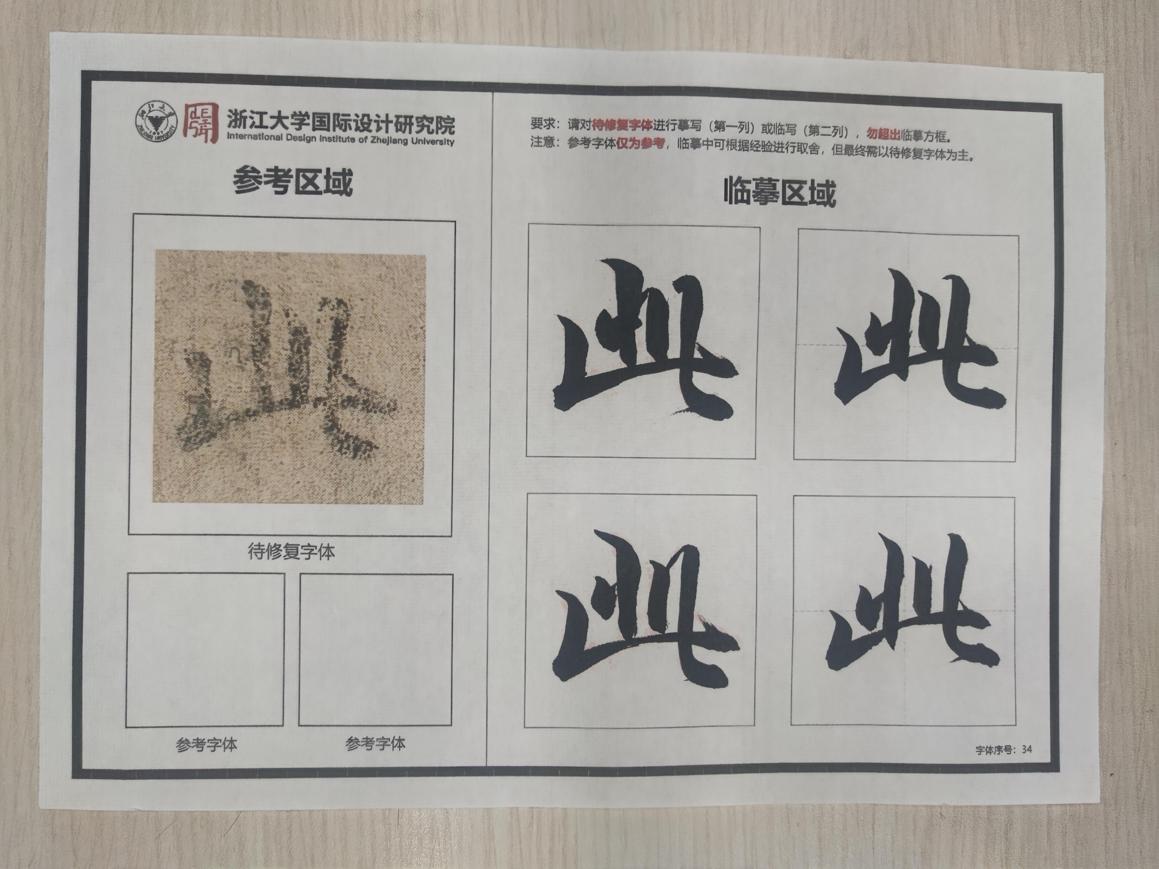 浙江大学国际设计研究院
International Design Institute of Zhejiang University
参考区域
待修复字体
参考字体
参考字体
要求：请对待修复字体进行摹写（第一列）或临写（第二列），勿超出临摹方框。
注意：参考字体仅为参考，临摹中可根据经验进行取舍，但最终需以待修复字体为主。
临摹区域
字体序号：34